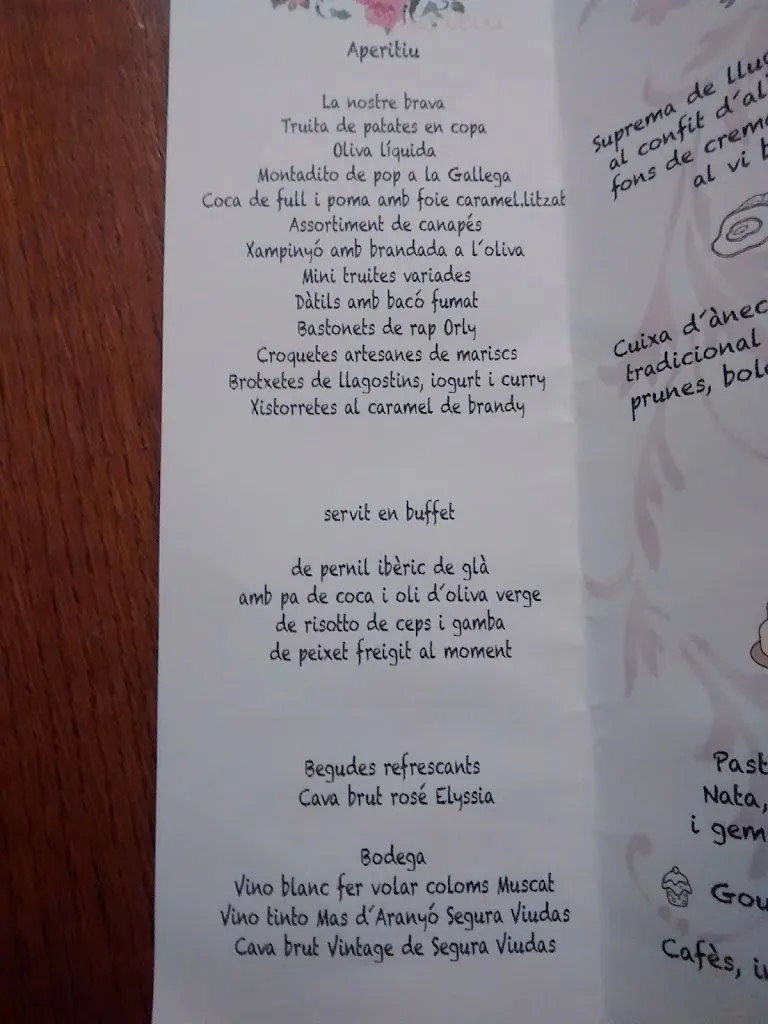 Aperitiu
La nostre brava
Truita de patates en copa
Oliva líquida
Montadito de pop a la Gallega
Coca de full i poma amb foie caramel.litzat
Assortiment de canapés
Xampinyó amb brandada a l'oliva
Mini truites variades
Dàtils amb bacó fumat
Bastonets de rap Orly
Croquetes artesanes de mariscs
Brotxetes de llagostins, iogurt i curry
Xistorretes al caramel de brandy
servit en buffet
de pernil ibèric de glà
amb pa de coca i oli d'oliva verge
de risotto de ceps i gamba
de peixet freigit al moment
Begudes refrescants
Cava brut rosé Elyssia
Bodega
Vino blanc fer volar coloms Muscat
Vino tinto Mas d'Aranyó Segura Viudas
Cava brut Vintage de Segura Viudas
Suprema de
al confit
fons de
al vi
Cuixa d'ànec
tradicional
prunes,
Nata,
i
Cafès,